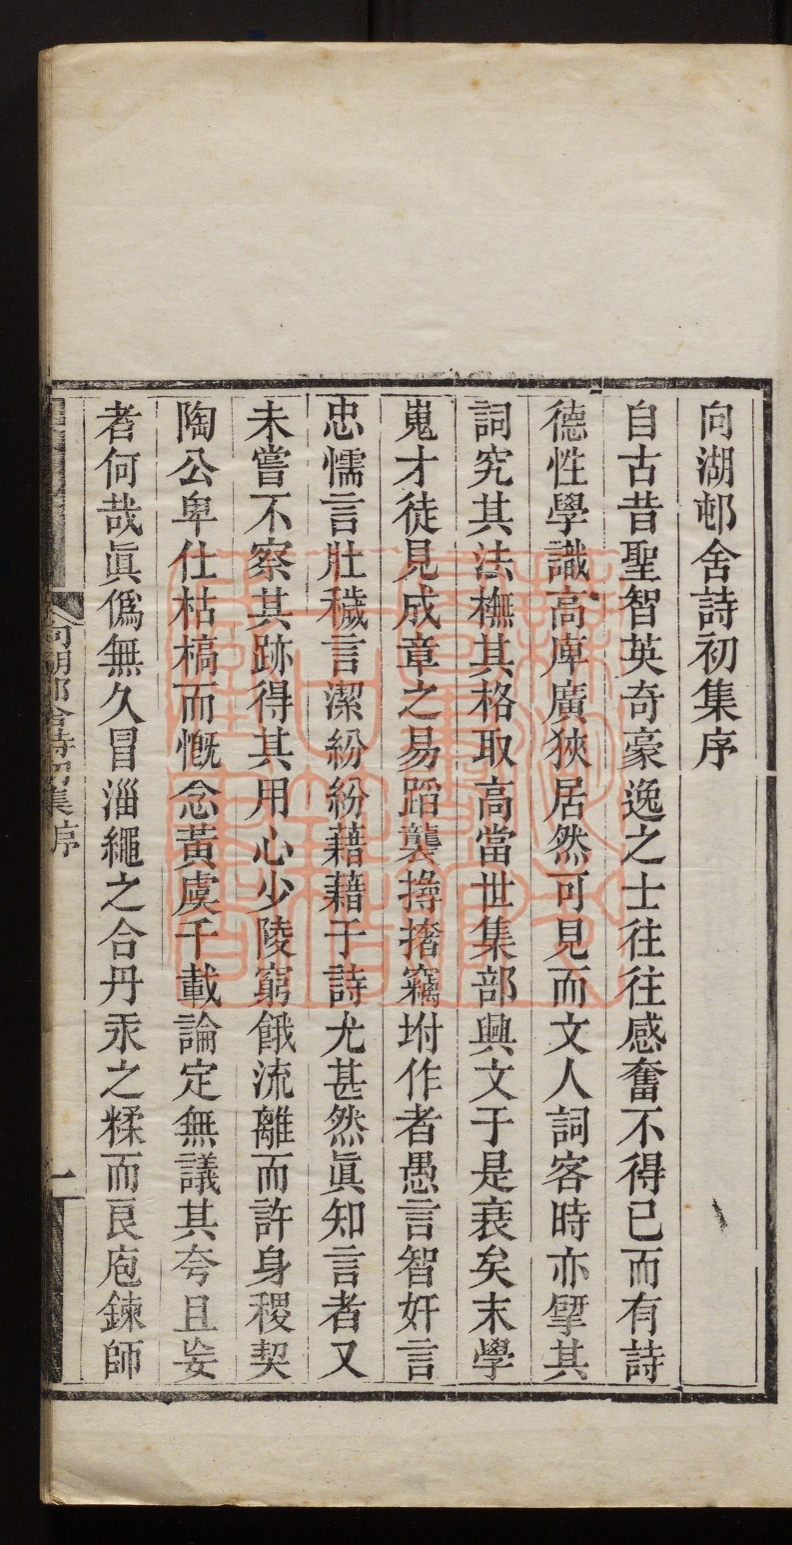 向湖邨舍詩初集序
自古昔聖智英奇豪逸之士往往感奮不得已而有詩
德性學識高庳廣狹居然可見而文人詞客時亦揅其
詞究其法橅其格取高當世集部興文于是衰矣末學
嵬才徒見成章之易蹈襲撏撦竊坿作者愚言智奸言
忠懦言壯穢言潔紛紛藉藉于詩尤甚然眞知言者又
未嘗不察其跡得其用心少陵窮餓流離而許身稷契
陶公卑仕枯槁而慨念黃虞千載論定無議其夸且妄
者何哉眞僞無久冒淄繩之合丹汞之糅而良庖鍊師
向湖邨舍詩初集序
一